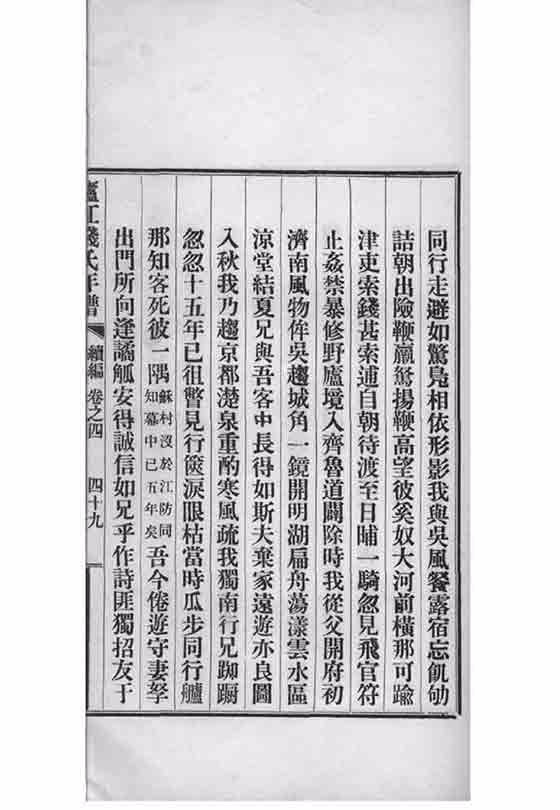 同行走避如驚鳧相依形影我與吳風餐露宿忘飢劬
詰朝出險鞭羸駑揚鞭高望彼奚奴大河前橫那可踰
津吏索錢甚索逋自朝待渡至日晡一騎忽見飛官符
止姦禁暴修野廬境入齊魯道闢除時我從父開府初
濟南風物侔吳趨城角一鏡開明湖扁舟蕩漾雲水區
涼堂結夏兄與吾客中長得如斯夫棄家遠遊亦良圖
入秋我乃趨京都澆泉重酌寒風疏我獨南行兄踟躕
忽忽十五年已徂瞥見行篋淚眼枯當時瓜步同行艫
那知客死彼一隅蘇村沒於江防同知幕中已五年矣吾今倦遊守妻孥
出門所向逢譎觚安得誠信如兄乎作詩匪獨招友于
廬江錢氏年譜 續編 卷之四 四十九